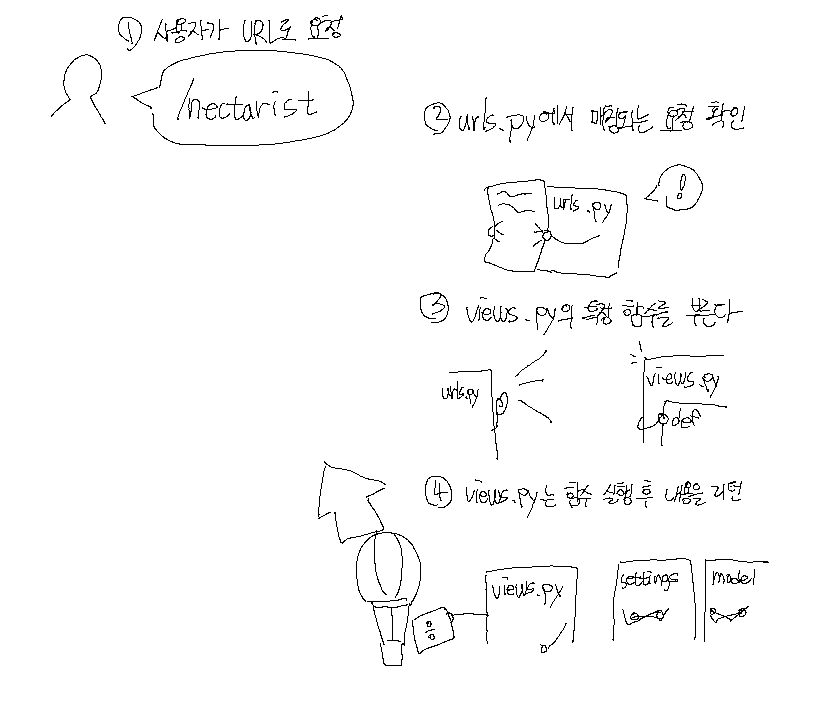 ① 사용자가 URL로 요청
/nectarist
② urls.py에서 매칭되는 요청 확인
urls.py
!
③ views.py의 특정 함수를 부른다
urls.py
views.py
def
④ views.py는 함수 실행 후 내용을 리턴
views.py
settings
model